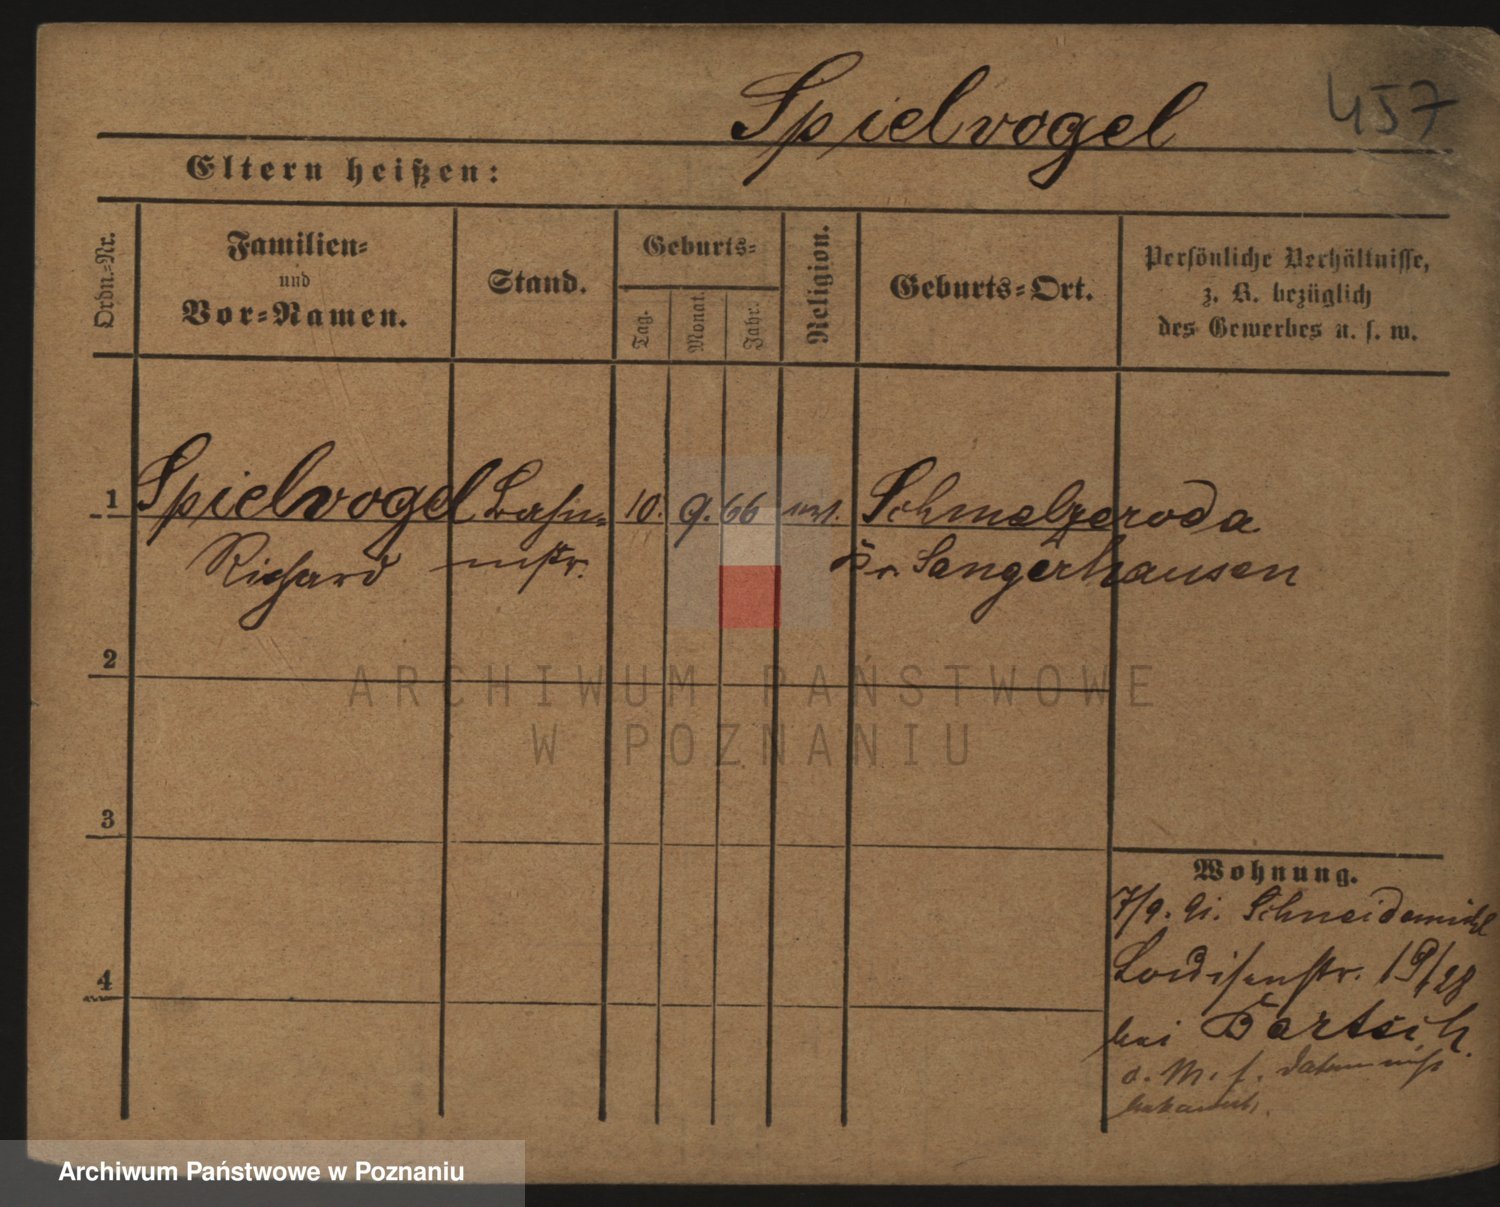 Spielvogel 457
Eltern heißen:
Ordn.-Nr.
Familien-
und
Vor-Namen.
Stand.
Geburts-
Tag.
Monat.
Jahr.
Religion.
Geburts-Ort.
Persönliche Verhältnisse,
z. B. bezüglich
des Gewerbes u. s. w.
1 Spielvogel 10. 9. 66 Schmelzeroda
Richard mstr. Kr. Sangerhausen
2
3
4
Wohnung.
7/9. Schneidemühl
Louisenstr. 19/28
bei Bartsch.
d. M. f. Datum nicht
bekannt.
ARCHIWUM PAŃSTWOWE
W POZNANIU
Archiwum Państwowe w Poznaniu